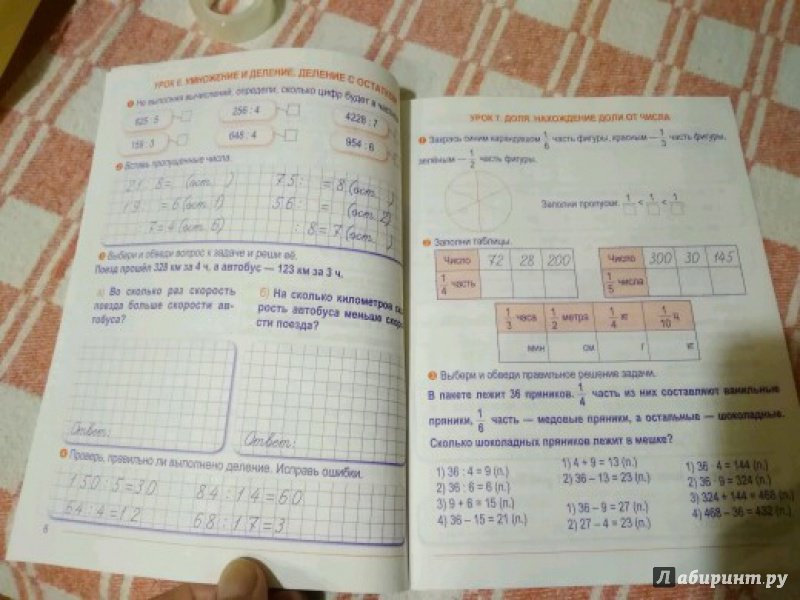 УРОК 6. УМНОЖЕНИЕ И ДЕЛЕНИЕ. ДЕЛЕНИЕ С
1 Не выполняя вычислений, определи, сколько цифр будет в
625 : 5
256 : 4
4228 : 7
159 : 3
648 : 4
954 : 6
2 Вставь пропущенные числа.
21 : 8 = (ост. )
75 : = 8 (ост. )
19 : = 6 (ост. 1)
56 : = (ост. 2)
: 7 = 4 (ост. 6)
: 8 = 7 (ост. )
3 Выбери и обведи вопрос к задаче и реши её.
Поезд прошёл 328 км за 4 ч, а автобус — 123 км за 3 ч.
а) Во сколько раз скорость
поезда больше скорости ав-
тобуса?
б) На сколько километров
рость автобуса меньше скоро-
сти поезда?
Ответ:
Ответ:
4 Проверь, правильно ли выполнено деление. Исправь ошибки.
150 : 5 = 30
84 : 14 = 60
64 : 4 = 12
68 : 17 = 3
6
УРОК 7. ДОЛЯ. НАХОЖДЕНИЕ ДОЛИ ОТ ЧИСЛА
1 Закрась синим карандашом 1/6 часть фигуры, красным — 1/3 часть фигуры,
зелёным — 1/2 часть фигуры.
Заполни пропуски: 1/ < 1/ < 1/
2 Заполни таблицы.
Число 72 28 200
1/4 часть
Число 300 30 145
1/5 числа
1/3 часа 1/2 метра 1/4 кг 1/10 ч
мин см г кг
3 Выбери и обведи правильное решение задачи.
В пакете лежит 36 пряников. 1/4 часть из них составляют ванильные
пряники, 1/6 часть — медовые пряники, а остальные — шоколадные.
Сколько шоколадных пряников лежит в мешке?
1) 36 : 4 = 9 (п.)
2) 36 : 6 = 6 (п.)
3) 9 + 6 = 15 (п.)
4) 36 – 15 = 21 (п.)
1) 4 + 9 = 13 (п.)
2) 36 – 13 = 23 (п.)
1) 36 – 9 = 27 (п.)
2) 27 – 4 = 23 (п.)
1) 36 · 4 = 144 (п.)
2) 36 · 9 = 324 (п.)
3) 324 + 144 = 468 (п.)
4) 468 – 36 = 432 (п.)
Лабиринт.ру